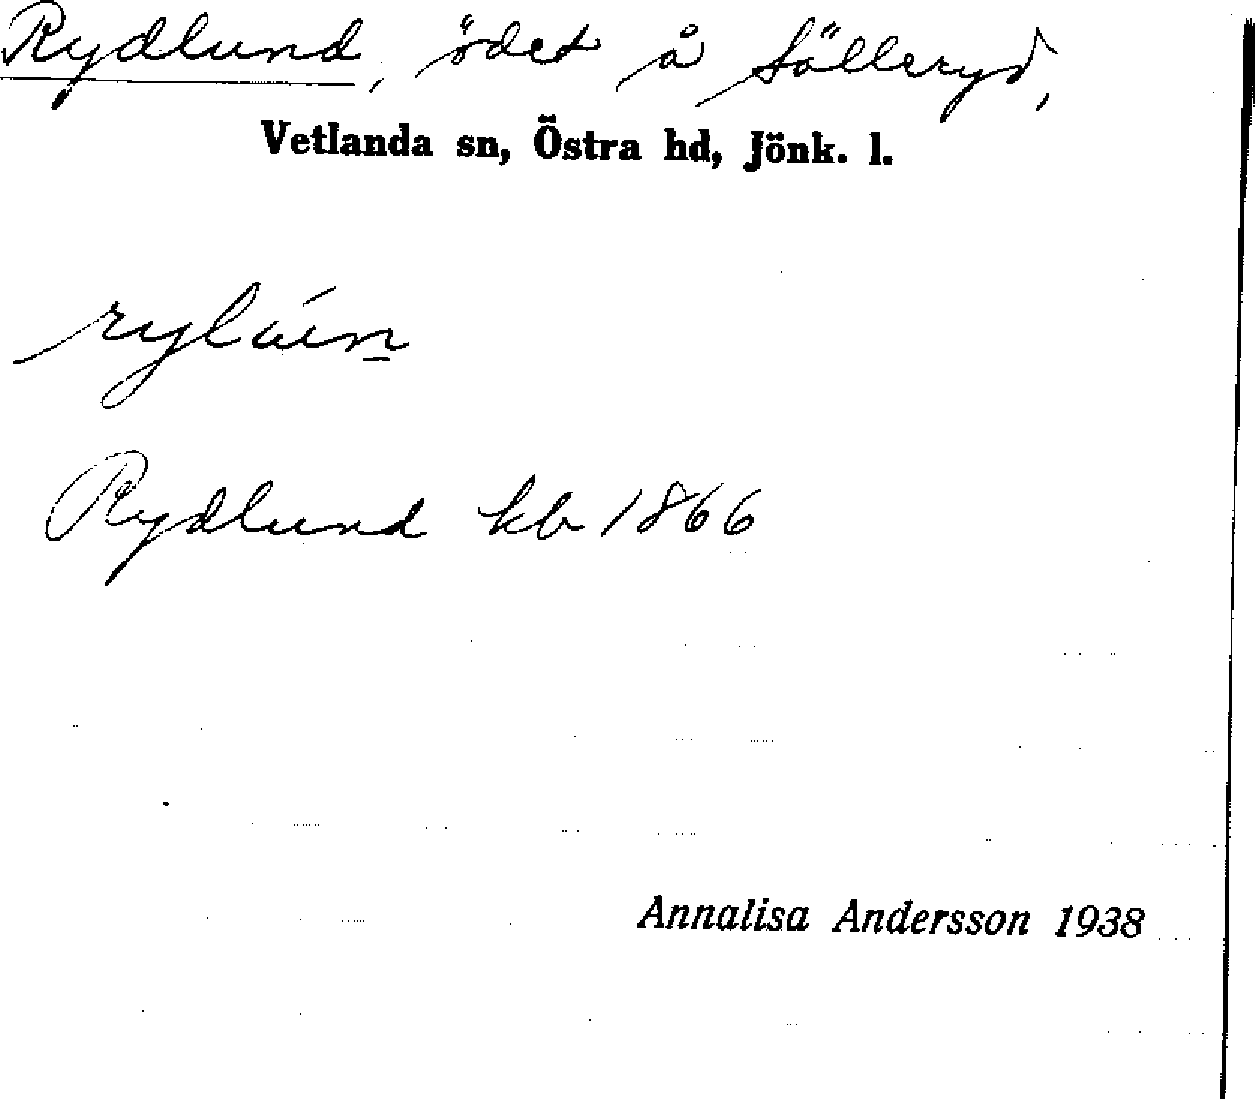 Rydlund, ödet å Sälleryd,
Vetlanda sn, Östra hd, Jönk. l.
Rydlund kb 1866
Annalisa Andersson 1938